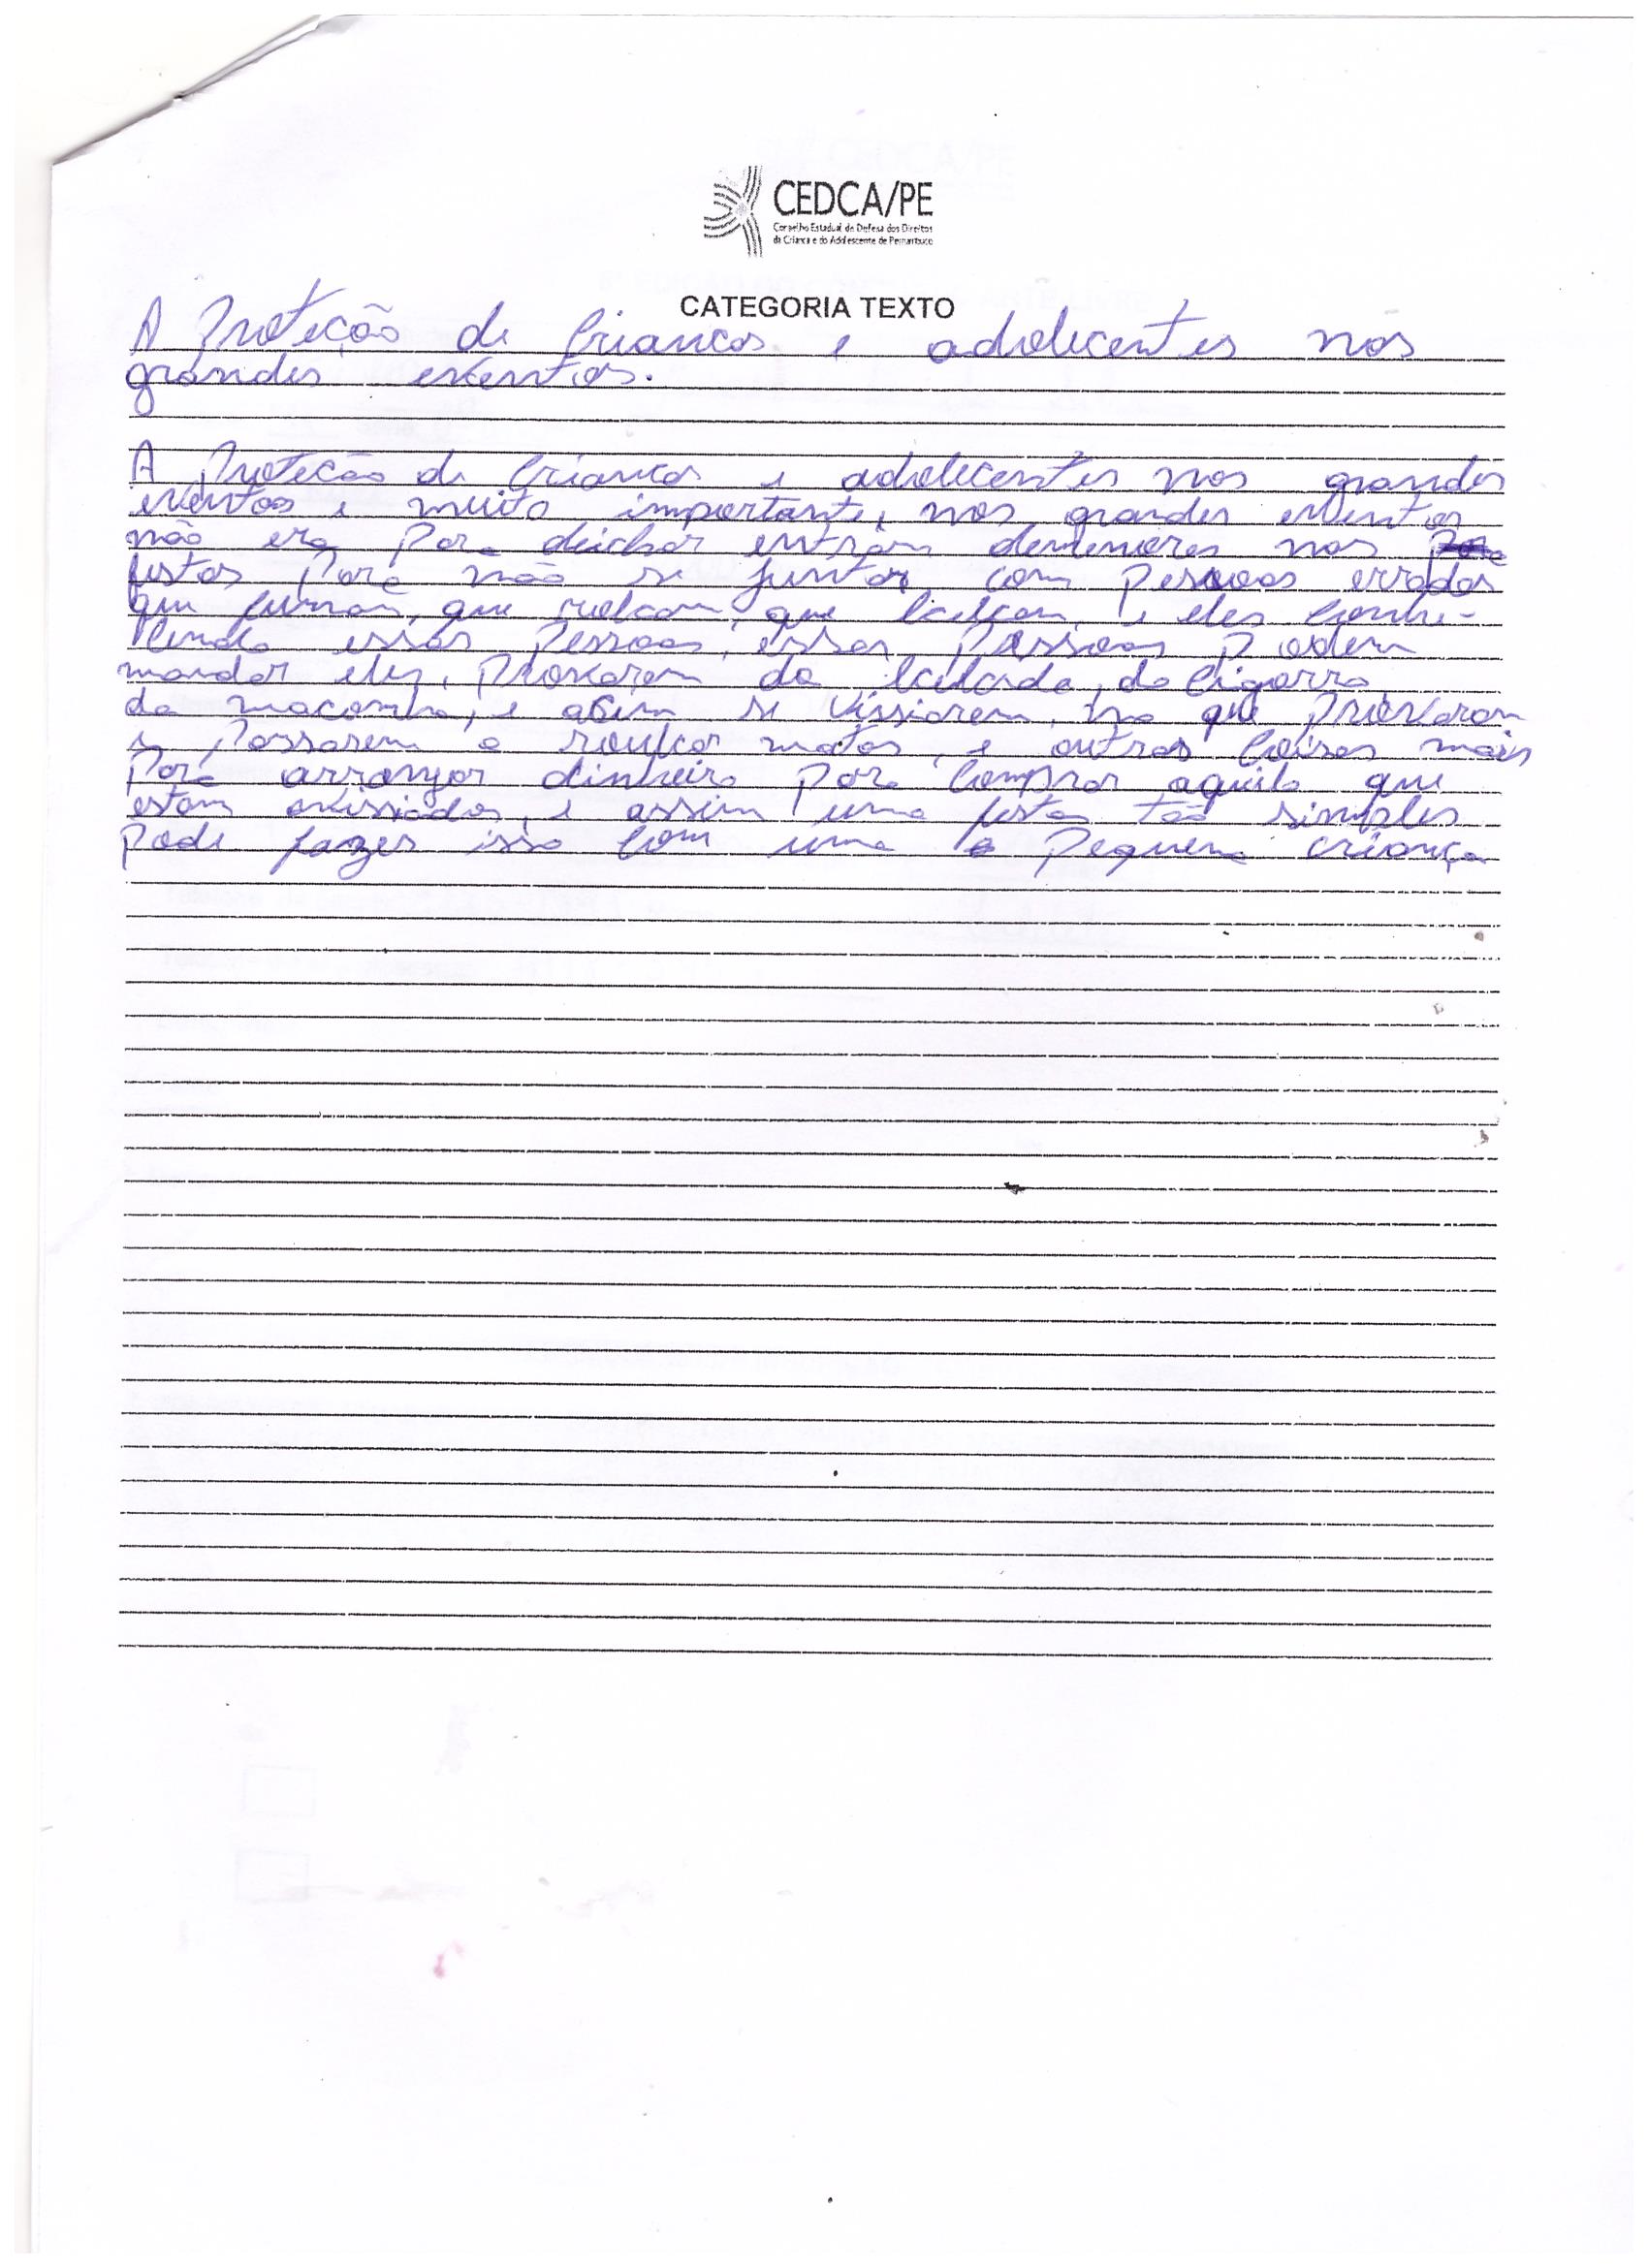 CEDCA/PE
Conselho Estadual de Defesa dos Direitos
da Criança e do Adolescente de Pernambuco
CATEGORIA TEXTO
A Proteção de Criancas e adolecentes nos
grandes eventos.
A Proteção de Criancas e adolecentes nos grandes
eventos e muito importante, nos grandes eventos
não era para deichar entrãm demenores nas
festas para não se juntar com pessoas erradas
que fumam, que roubam, que bebem, e eles conhe-
cendo essas pessoas, essas pessoas podem
mandar eles, provarem da bebida, do cigarro
da maconha, e asim se vissiarem, no que provaram
e passarem a roubar matar, e outras coisas mais
para arranjar dinheiro para comprar aquilo que
estam vissiados, e assim uma festa tão simples
pode fazer isso com uma pequena criança